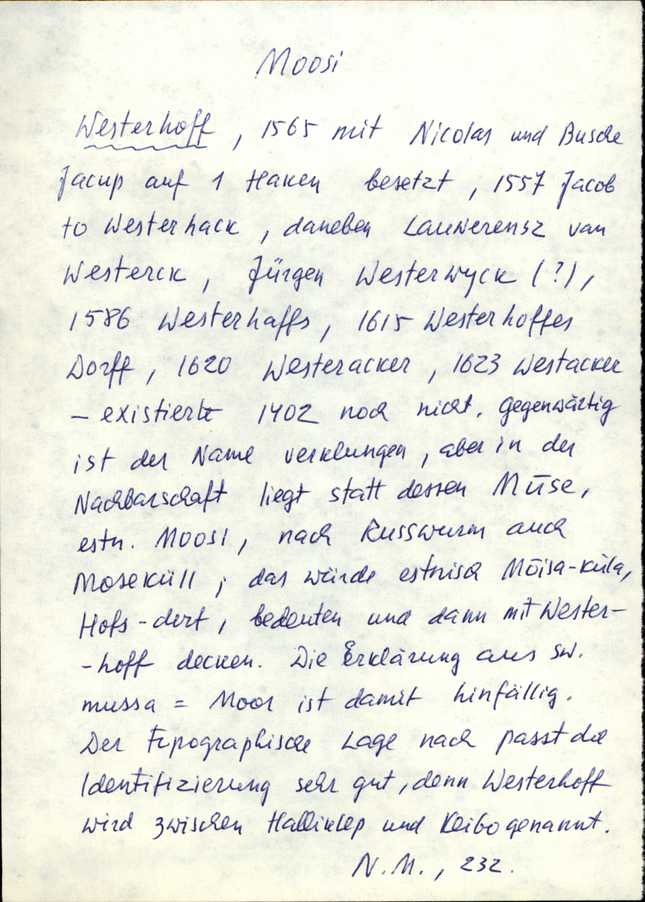 Moosi
Westerhoff, 1565 mit Nicolas und Busche
Jacup auf 1 Haken besetzt, 1557 Jacob
to Westerhack, daneben Lauwerensz van
Westerck, Jürgen Westerwyck (?),
1586 Westerhaffs, 1615 Westerhoffes
Dorff, 1620 Westeracker, 1623 Westacker
– existierte 1402 noch nicht. Gegenwärtig
ist der Name verklungen, aber in der
Nachbarschaft liegt statt dessen Müse,
estn. Moosi, nach Russwurm auch
Moseküll; das würde estnisch Mõisa-küla,
Hofs-dorf, bedeuten und dann mit Wester-
-hoff decken. Die Erklärung aus sw.
mussa = Moor ist damit hinfällig.
Der topographische Lage nach passt die
Identifizierung sehr gut, denn Westerhoff
wird zwischen Halliklep und Keibo genannt.
N.M., 232.